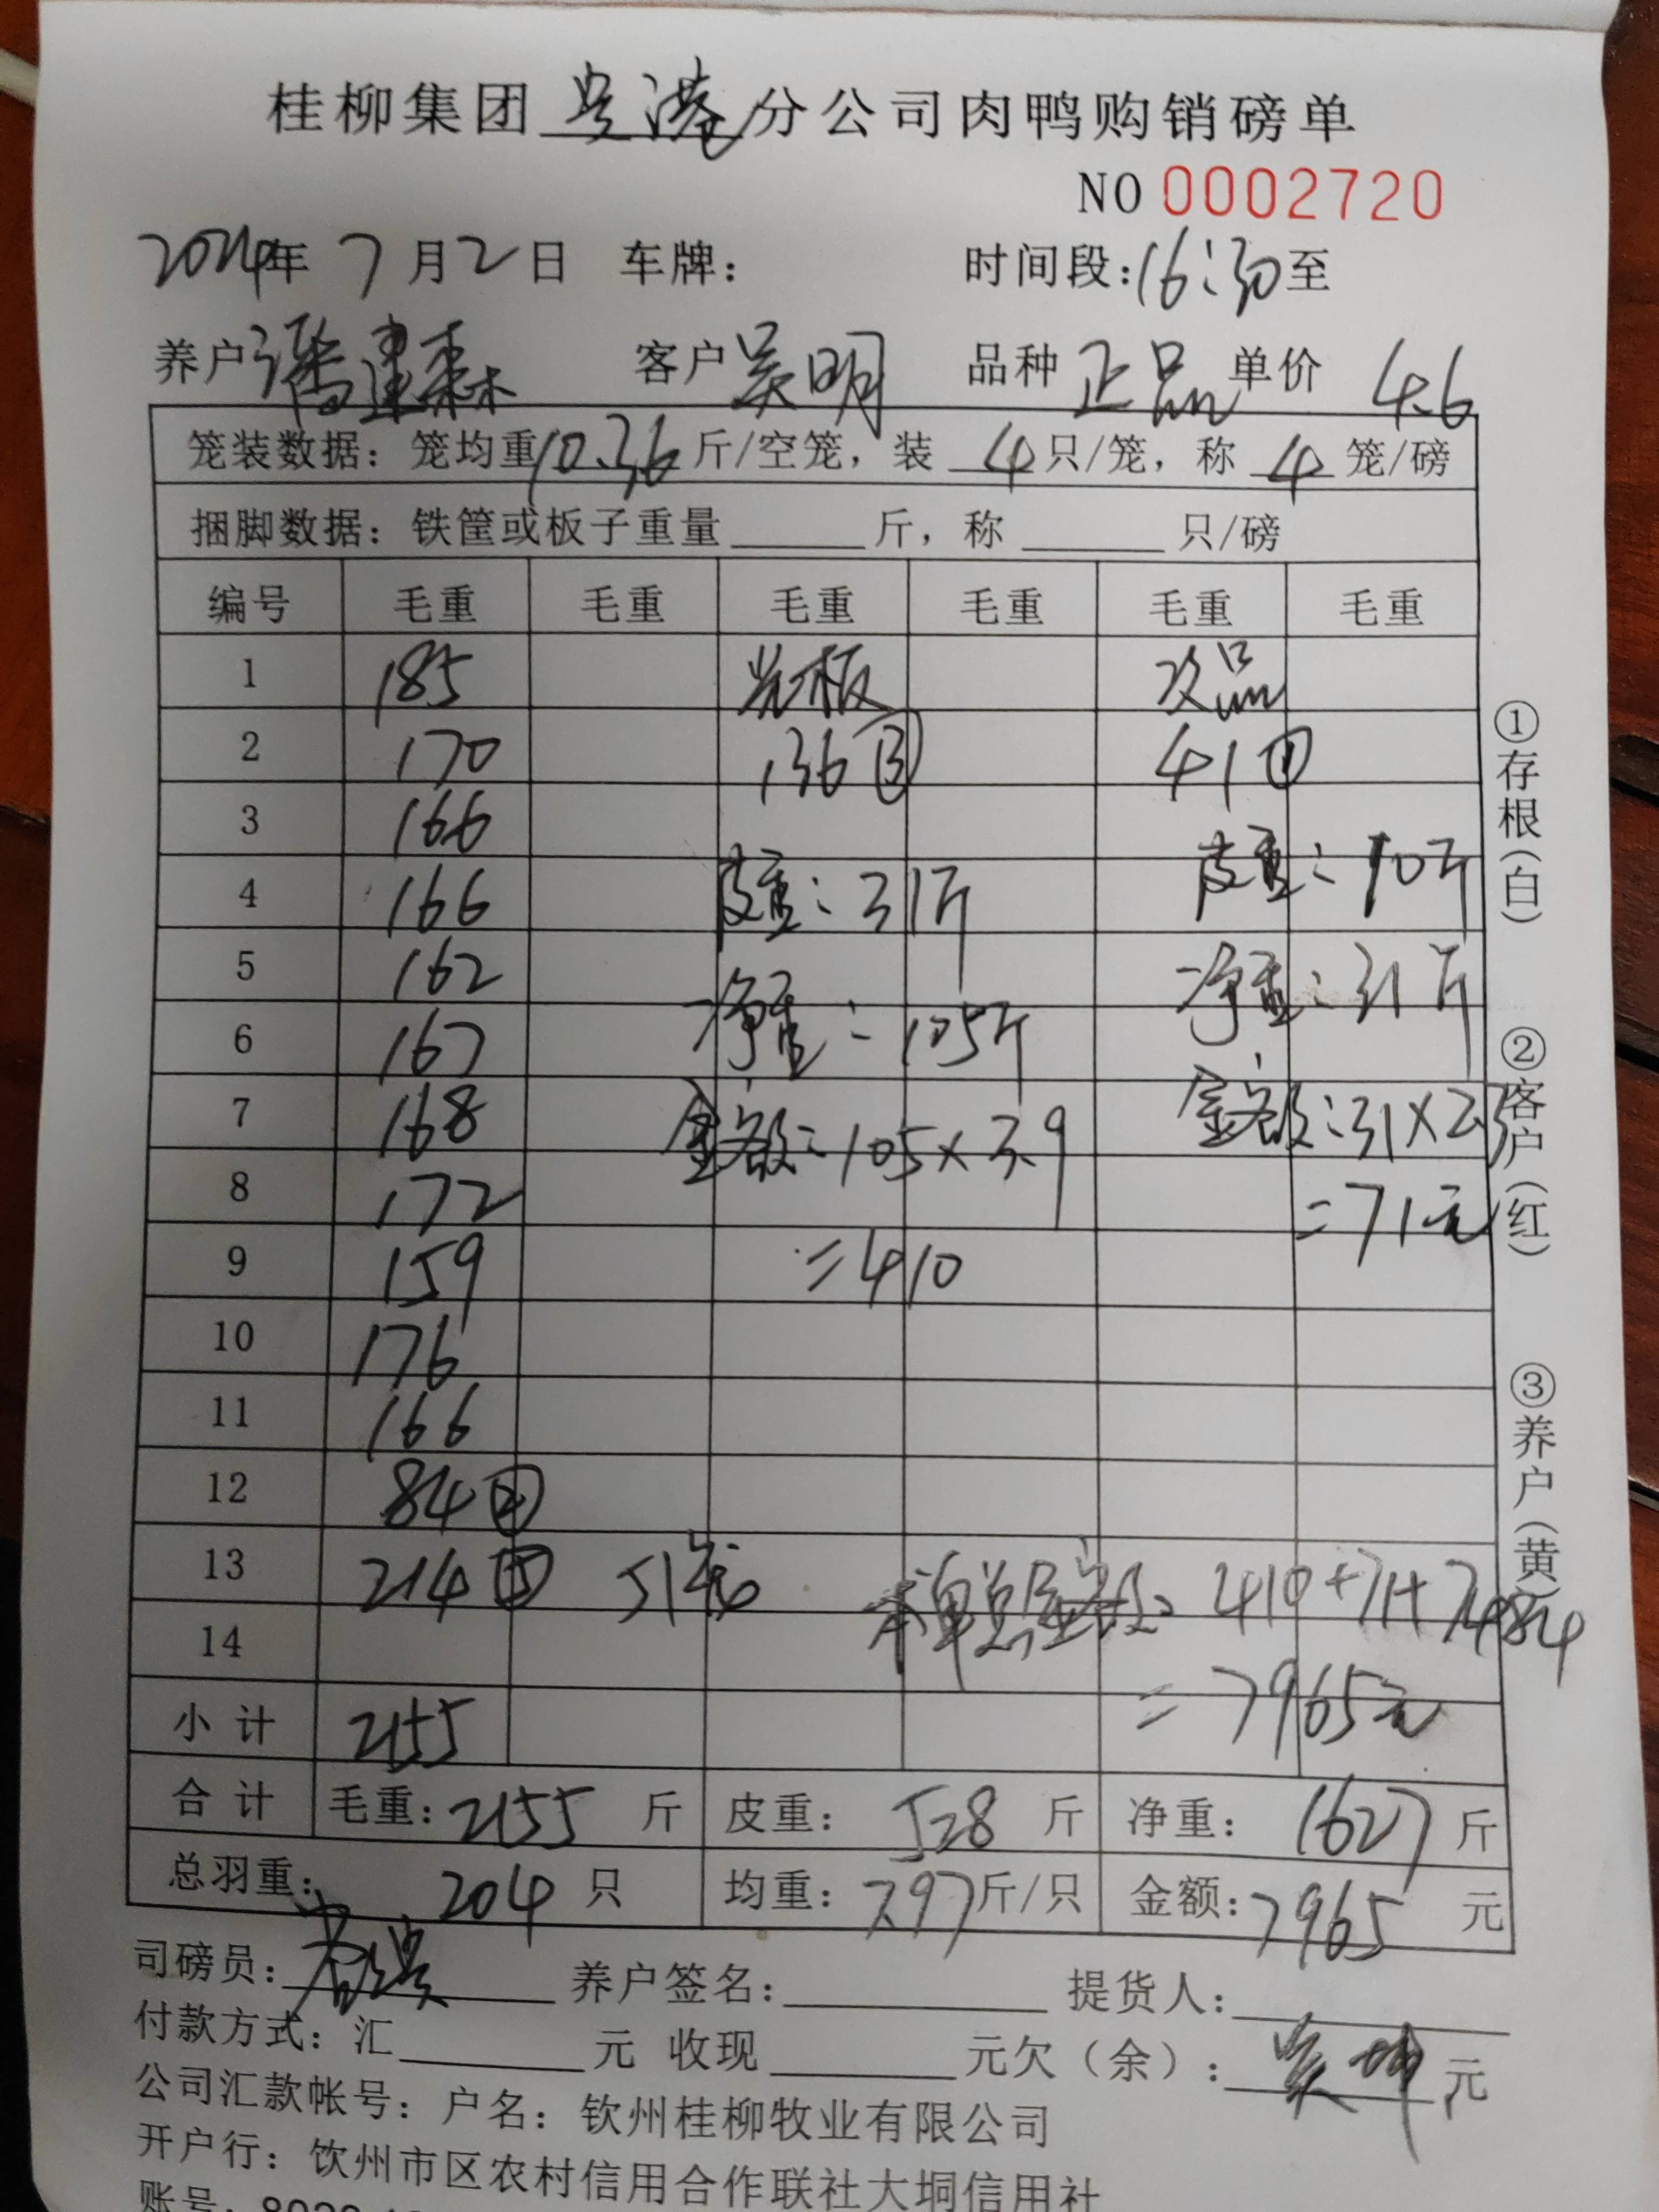 桂柳集团贵港分公司肉鸭购销磅单
NO 0002720
2024年 7月2日 车牌： 时间段：16:30至
养户 潘建森 客户 吴明 品种 正品 单价 4.6
笼装数据：笼均重10.36斤/空笼，装 4 只/笼，称 4 笼/磅
捆脚数据：铁筐或板子重量______斤，称______只/磅
编号 毛重 毛重 毛重 毛重 毛重 毛重
1 185 光板 次品
2 170 136③ 41①
3 166
4 166 皮重：31斤 皮重：10斤
5 162 净重：31斤
6 167 净重：105斤
7 168 金额：105×3.9 金额：31×2.3
8 172 =71元
9 159 =410
10 176
11 166
12 84②
13 214⑤ 51笼 本单总金额：410+71+7484
14 =7965元
小计 2155
合计 毛重：2155 斤 皮重：528 斤 净重：1627 斤
总羽重： 204 只 均重：7.97斤/只 金额：7965 元
司磅员： 养户签名： 提货人：
付款方式：汇______元 收现______元欠（余）：吴坤 元
公司汇款帐号：户名：钦州桂柳牧业有限公司
开户行：饮州市区农村信用合作联社大垌信用社
账号：
①存根（白）
②客户（红）
③养户（黄）